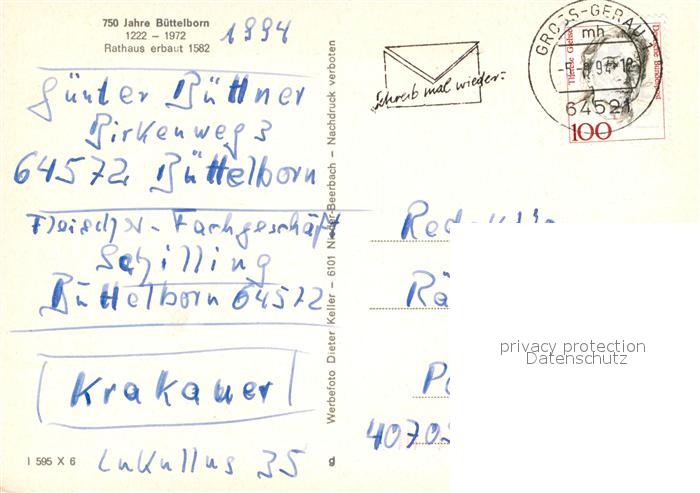 750 Jahre Büttelborn
1222 – 1972
Rathaus erbaut 1582
1994
Günter Büttner
Birkenweg 3
64572 Büttelborn
Fleischer-Fachgeschäft
Schilling
Büttelborn 64572
Krakauer
Lukullus 35
I 595 X 6
g
Werbefoto Dieter Keller – 6101 Nieder-Beerbach – Nachdruck verboten
Schreib mal wieder
GROSS-GERAU 1
mh
64521
Deutsche Bundespost
100
privacy protection
Datenschutz